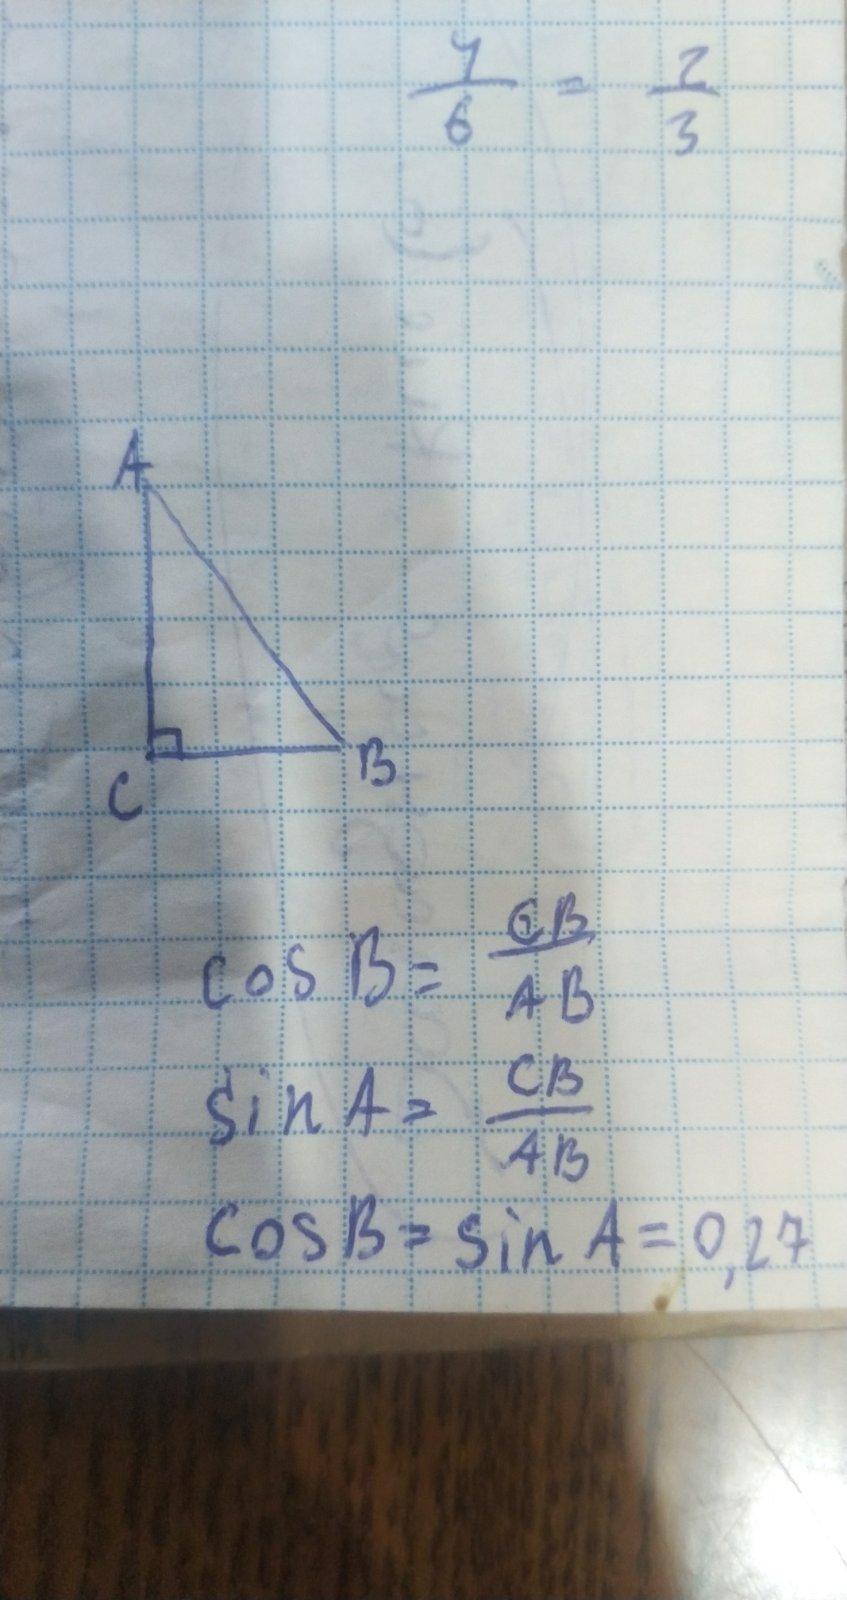 4/6 = 2/3
A
C B
cos B = CB/AB
sin A = CB/AB
cos B = sin A = 0,27